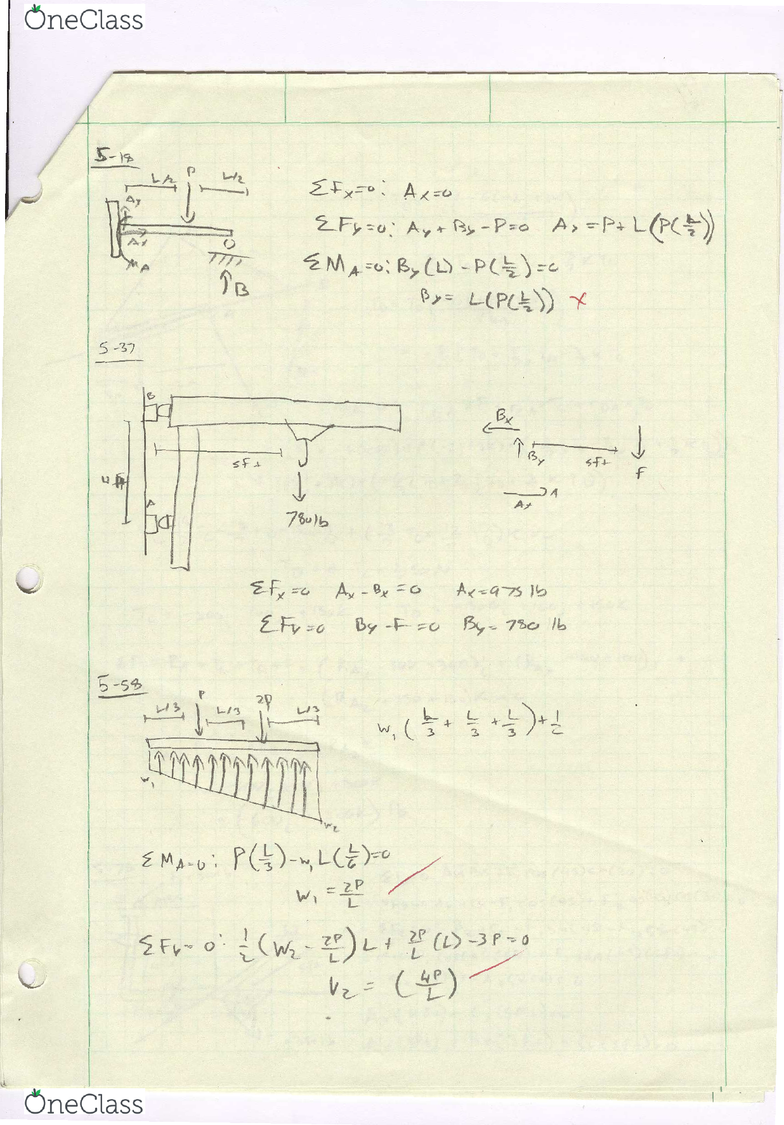 OneClass
5-18
L/2 P L/2
Ay
Ax
MA
B
ΣFx=0: Ax=0
ΣFy=0: Ay+By-P=0 Ay=P+L(P(L/2))
ΣMA=0: By(L)-P(L/2)=0
By= L(P(L/2)) ×
5-37
B
5ft
A
780lb
Bx
By 5ft
F
Ax
ΣFx=0 Ax-Bx=0 Ax=975 lb
ΣFy=0 By-F=0 By=780 lb
5-58
L/3 P L/3 2P L/3
w1
w2
w1(L/3+L/3+L/3)+1/2
ΣMA=0: P(L/3)-w1L(L/6)=0
w1=2P/L
ΣFy=0: 1/2(W2-2P/L)L+2P/L(L)-3P=0
V2=(4P/L)
OneClass